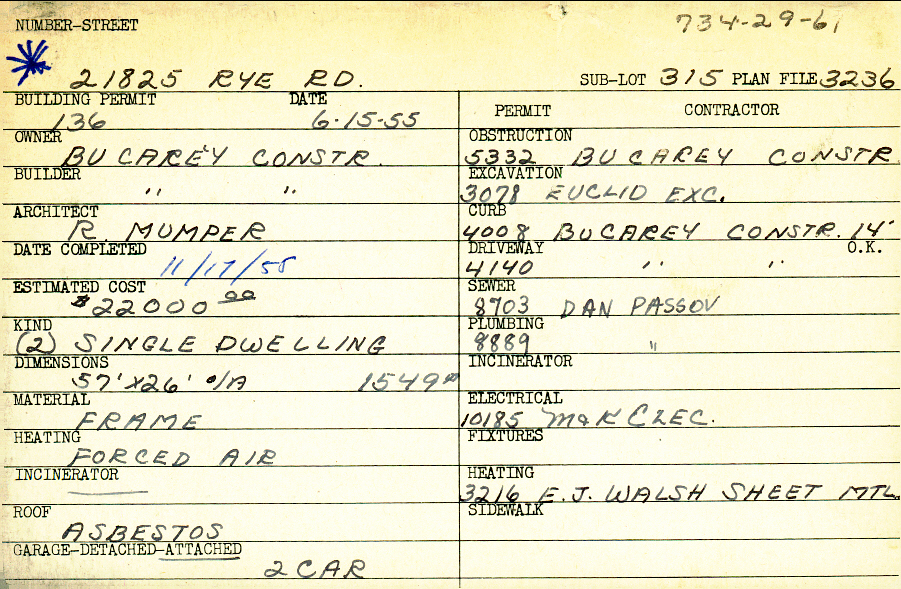 NUMBER-STREET
734-29-61
21825 RYE RD.
SUB-LOT 315 PLAN FILE 3236
BUILDING PERMIT DATE
136 6-15-55
OWNER
BUCAREY CONSTR.
BUILDER
" "
ARCHITECT
R. MUMPER
DATE COMPLETED
11/17/55
ESTIMATED COST
$22000 00
KIND
(2) SINGLE DWELLING
DIMENSIONS
57'x26' o/A 1549
MATERIAL
FRAME
HEATING
FORCED AIR
INCINERATOR
ROOF
ASBESTOS
GARAGE-DETACHED-ATTACHED
2 CAR
PERMIT CONTRACTOR
OBSTRUCTION
5332 BUCAREY CONSTR
EXCAVATION
3078 EUCLID EXC.
CURB
4008 BUCAREY CONSTR. 14'
DRIVEWAY O.K.
4140 " "
SEWER
8703 DAN PASSOV
PLUMBING
8889 "
INCINERATOR
ELECTRICAL
10185 M&K ELEC.
FIXTURES
HEATING
3216 E.J. WALSH SHEET MTL.
SIDEWALK